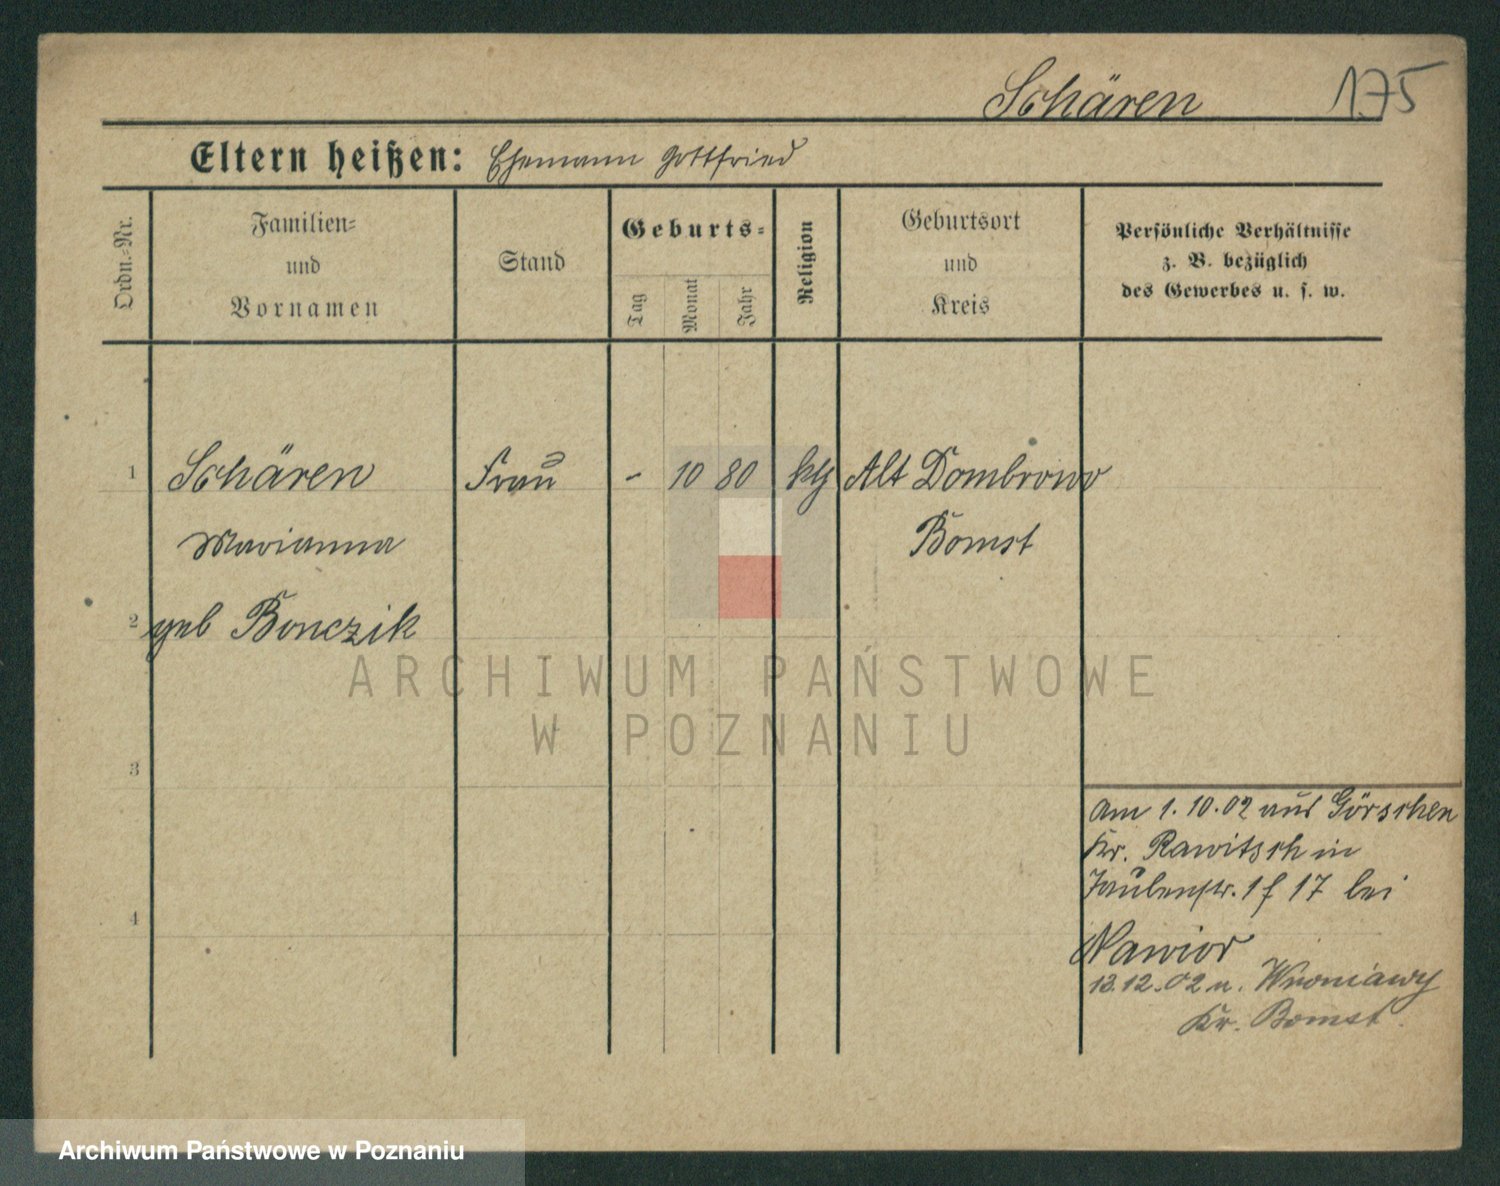 Schären 175
Eltern heißen: Ehemann Gottfried
Ordn.-Nr.
Familien-
und
Vornamen
Stand
Geburts-
Tag
Monat
Jahr
Religion
Geburtsort
und
Kreis
Persönliche Verhältnisse
z. B. bezüglich
des Gewerbes u. s. w.
1 Schären Frau - 10 80 kth Alt Dombrowo
Marianna Bomst
2 geb Bonczik
3
Am 1.10.02 aus Görschen
Kr. Rawitsch in
Taubenstr. 1 f 17 bei
4
Nawior
13.12.02 n. Wroniawy
Kr. Bomst.
ARCHIWUM PAŃSTWOWE
W POZNANIU
Archiwum Państwowe w Poznaniu